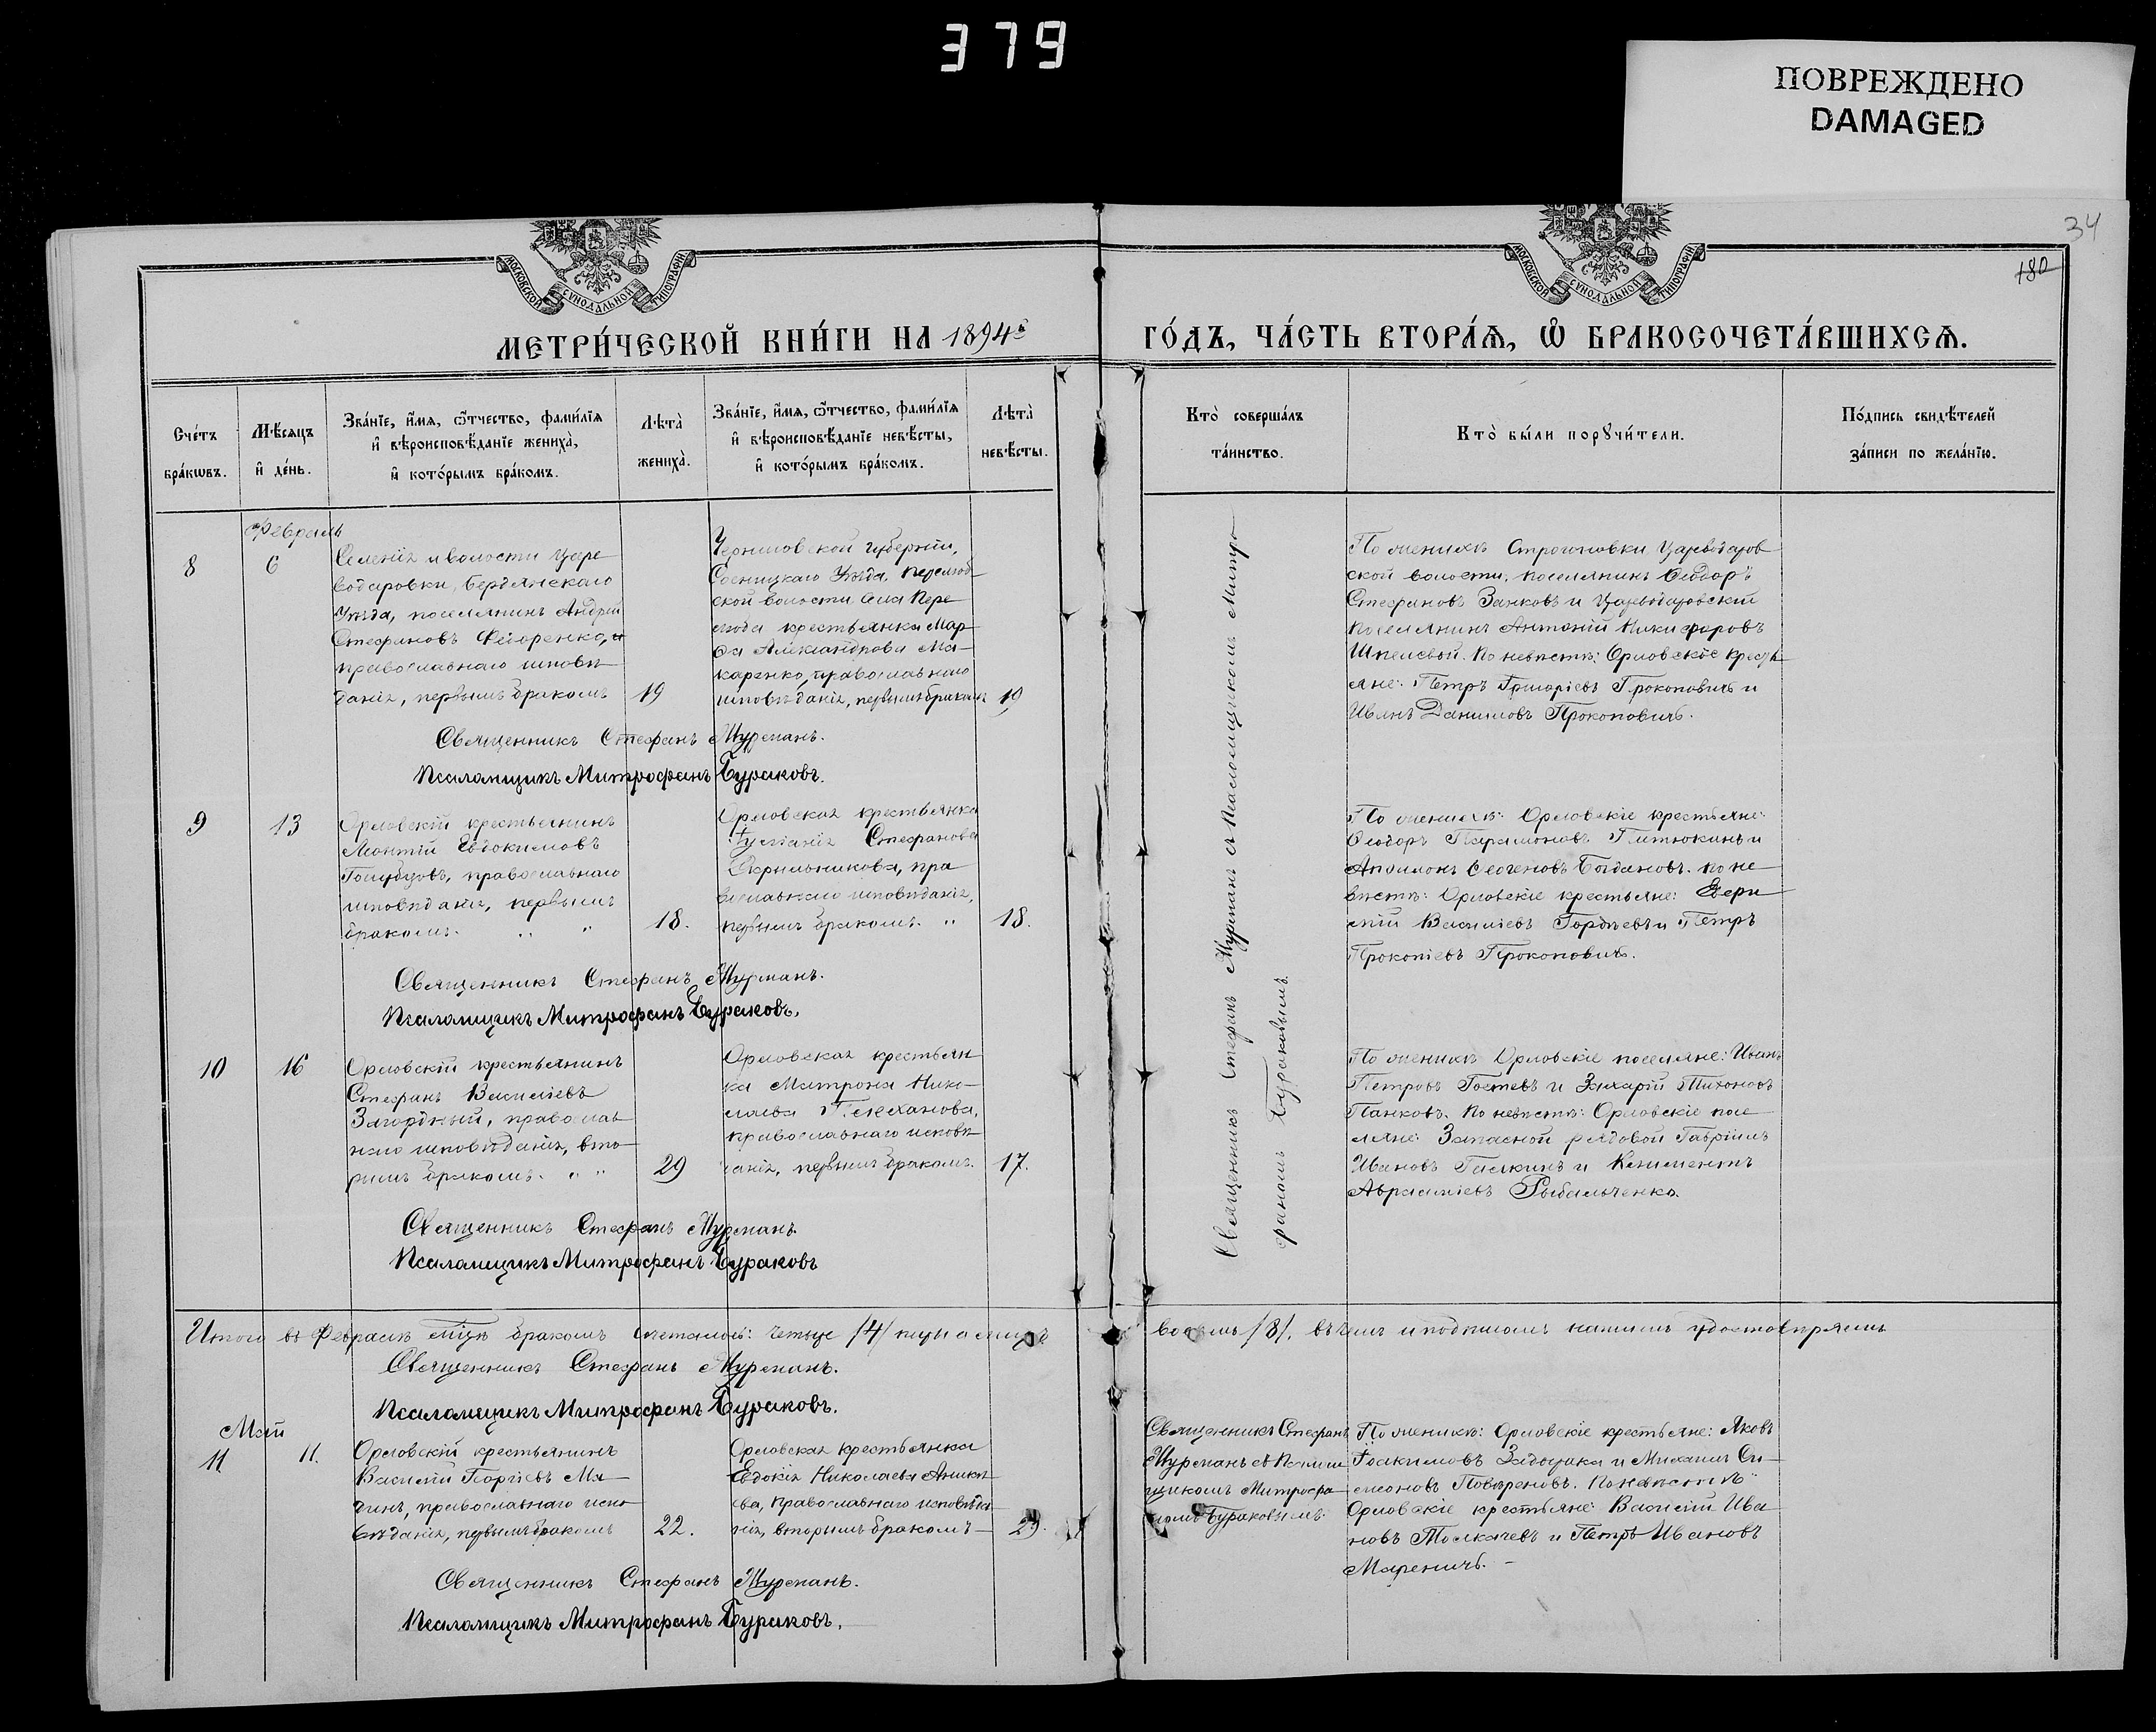 379
ПОВРЕЖДЕНО
DAMAGED
34
180
МОСКОВСКОЙ СѴНОДАЛЬНОЙ ТИПОГРАФІИ
МОСКОВСКОЙ СѴНОДАЛЬНОЙ ТИПОГРАФІИ
МЕТРИ́ЧЕСКОЙ КНИ́ГИ НА 1894й
ГО́ДЪ, ЧА́СТЬ ВТОРА́Ѧ, Ѽ БРАКОСОЧЕТА́ВШИХСѦ.
Сче́тъ
бра́кѡвъ.
Мѣ́сяцъ
и҆ де́нь.
Зва́нїе, и҆́мя, ѻ҆́тчество, фами́лїя
и҆ вѣроисповѣ́данїе жениха̀,
и҆ кото́рымъ бра́комъ.
Лѣ́та
жениха̀.
Зва́нїе, и҆́мя, ѻ҆́тчество, фами́лїя
и҆ вѣроисповѣ́данїе невѣ́сты,
и҆ кото́рымъ бра́комъ.
Лѣ́та
невѣ́сты.
Кто̀ соверша́лъ
та́инство.
Кто̀ бы́ли порꙋчи́тели.
По́дпись свидѣ́телей
за́писи по жела́нїю.
Февраль
8
6
Селенія и волости Царе
водаровки, Бердянскаго
Уѣзда, поселянинъ Андрей
Стефановъ Федоренко,
православнаго исповѣ
данія, первымъ бракомъ
19
Черниговской губерніи,
Сосницкаго Уѣзда,
ской волости села Пере
крестьянка Мар
фа Александрова Ма-
каренко, православнаго
исповѣданія, первымъ бракомъ
19
Священникъ Стефанъ Мурманъ съ Псаломщикомъ Митро
фаномъ Бураковымъ.
По женихѣ Строгановки Цареводаров
ской волости, поселянинъ Ѳеодоръ
Стефановъ Занковъ и Цареводаровскій
поселянинъ Антоній Никифоровъ
По невѣстѣ: Орловскіе крестья
яне: Петръ Григоріевъ Прокоповичъ и
Иванъ Даниловъ Прокоповичъ.
Священникъ Стефанъ Мурманъ.
Псаломщикъ Митрофанъ Бураковъ.
9
13
Орловскій крестьянинъ
Леонтій Евдокимовъ
Голубцовъ, православнаго
исповѣданія, первымъ
бракомъ. " "
18.
Орловская крестьянка
Іуліанія Стефанова
пра
вославнаго исповѣданія,
первымъ бракомъ. "
18.
По женихѣ: Орловскіе крестьяне:
Ѳеодоръ Парамоновъ и
Богдановъ. по не
вѣстѣ: Орловскіе крестьяне:
Василіевъ Гордѣевъ и Петръ
Прокопіевъ Прокоповичъ.
Священникъ Стефанъ Мурманъ.
Псаломщикъ Митрофанъ Бураковъ.
10
16
Орловскій крестьянинъ
Стефанъ Василіевъ
Загордный, православ
наго исповѣданія, вто
рымъ бракомъ. " "
29
Орловская крестьян
ка Матрона Нико-
лаева Плеханова,
православнаго исповѣ
данія, первымъ бракомъ.
17.
По женихѣ Орловскіе поселяне: Иванъ
Петровъ Гостевъ и Захарій Тихоновъ
Панковъ. По невѣстѣ: Орловскіе посе
ляне: Запасной рядовой Гавріилъ
Ивановъ Галкинъ и Климентъ
Авраамiевъ Рыбальченко.
Священникъ Стефанъ Мурманъ.
Псаломщикъ Митрофанъ Бураковъ
Итого въ Февралѣ м̃цѣ бракомъ сочеталось: четыре /4/ пары а лицъ
восемь /8/. въ чемъ и подписомъ нашимъ удостовѣряемъ
Священникъ Стефанъ Мурманъ.
Псаломщикъ Митрофанъ Бураковъ.
Май
11
11.
Орловскій крестьянинъ
Василій Ма
чинъ, православнаго испо
вѣданія, первымъ бракомъ
22.
Орловская крестьянка
Евдокія Николаева Аники
ева, православнаго исповѣда
нія, вторымъ бракомъ
29.
Священникъ Стефанъ
Мурманъ съ Псалом
щикомъ Митрофа
номъ Бураковымъ.
По женихѣ: Орловскіе крестьяне: Яковъ
Іоакимовъ Задоцика и Михаилъ Си-
меоновъ Повареновъ. По невѣстѣ
Орловскіе крестьяне: Василій Ива
новъ Толкачевъ и Петръ Ивановъ
Мареничъ. -
Священникъ Стефанъ Мурманъ.
Псаломщикъ Митрофанъ Бураковъ.